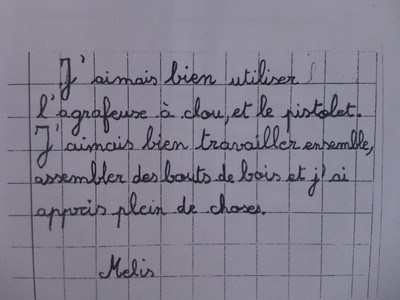 J'aimais bien utiliser
l'agrafeuse à clou, et le pistolet.
J'aimais bien travailler ensemble,
assembler des bouts de bois et j'ai
appris plein de choses.
Melis